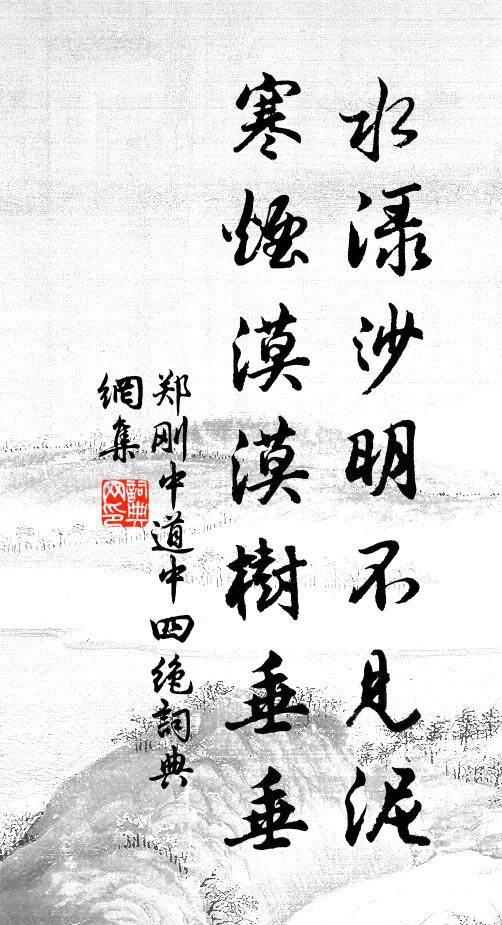 水渌沙明不見泥
寒煙漠漠樹垂垂
郑刚中道中四绝詞典
網集
詞典網印